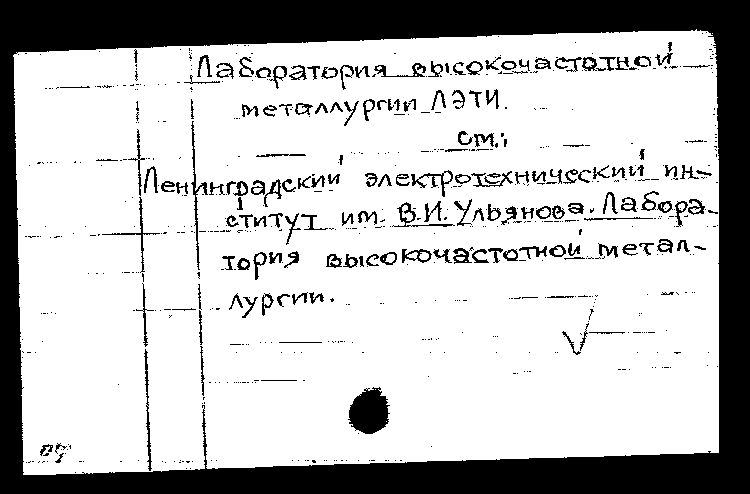 Лаборатория высокочастотной
металлургии ЛЭТИ.
см.:
Ленинградский электротехнический ин-
ститут им. В.И. Ульянова. Лабора-
тория высокочастотной метал-
лургии.